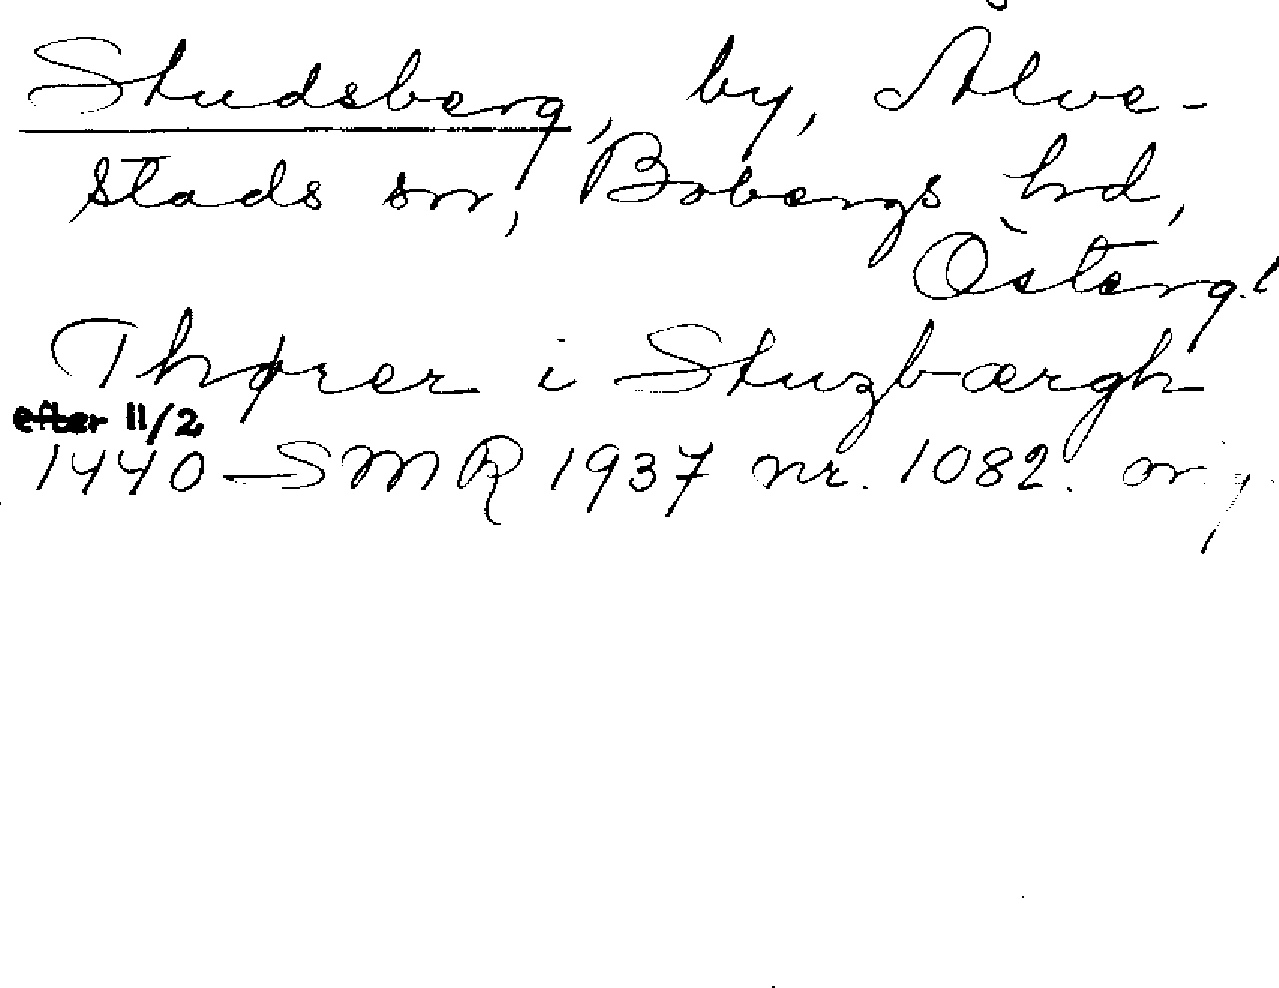 Studsberg, by, Alve-
stads sn, Bobergs hd,
Österg.
Thører i Stuzbærgh
efter 11/2
1440 SMR 1937 nr. 1082. orig.